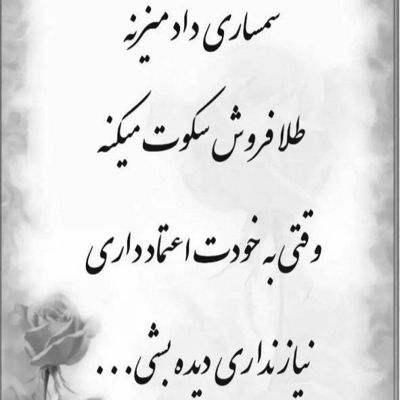 سمساری داد میزنه
طلا فروش سکوت میکنه
وقتی به خودت اعتماد داری
نیاز نداری دیده بشی...